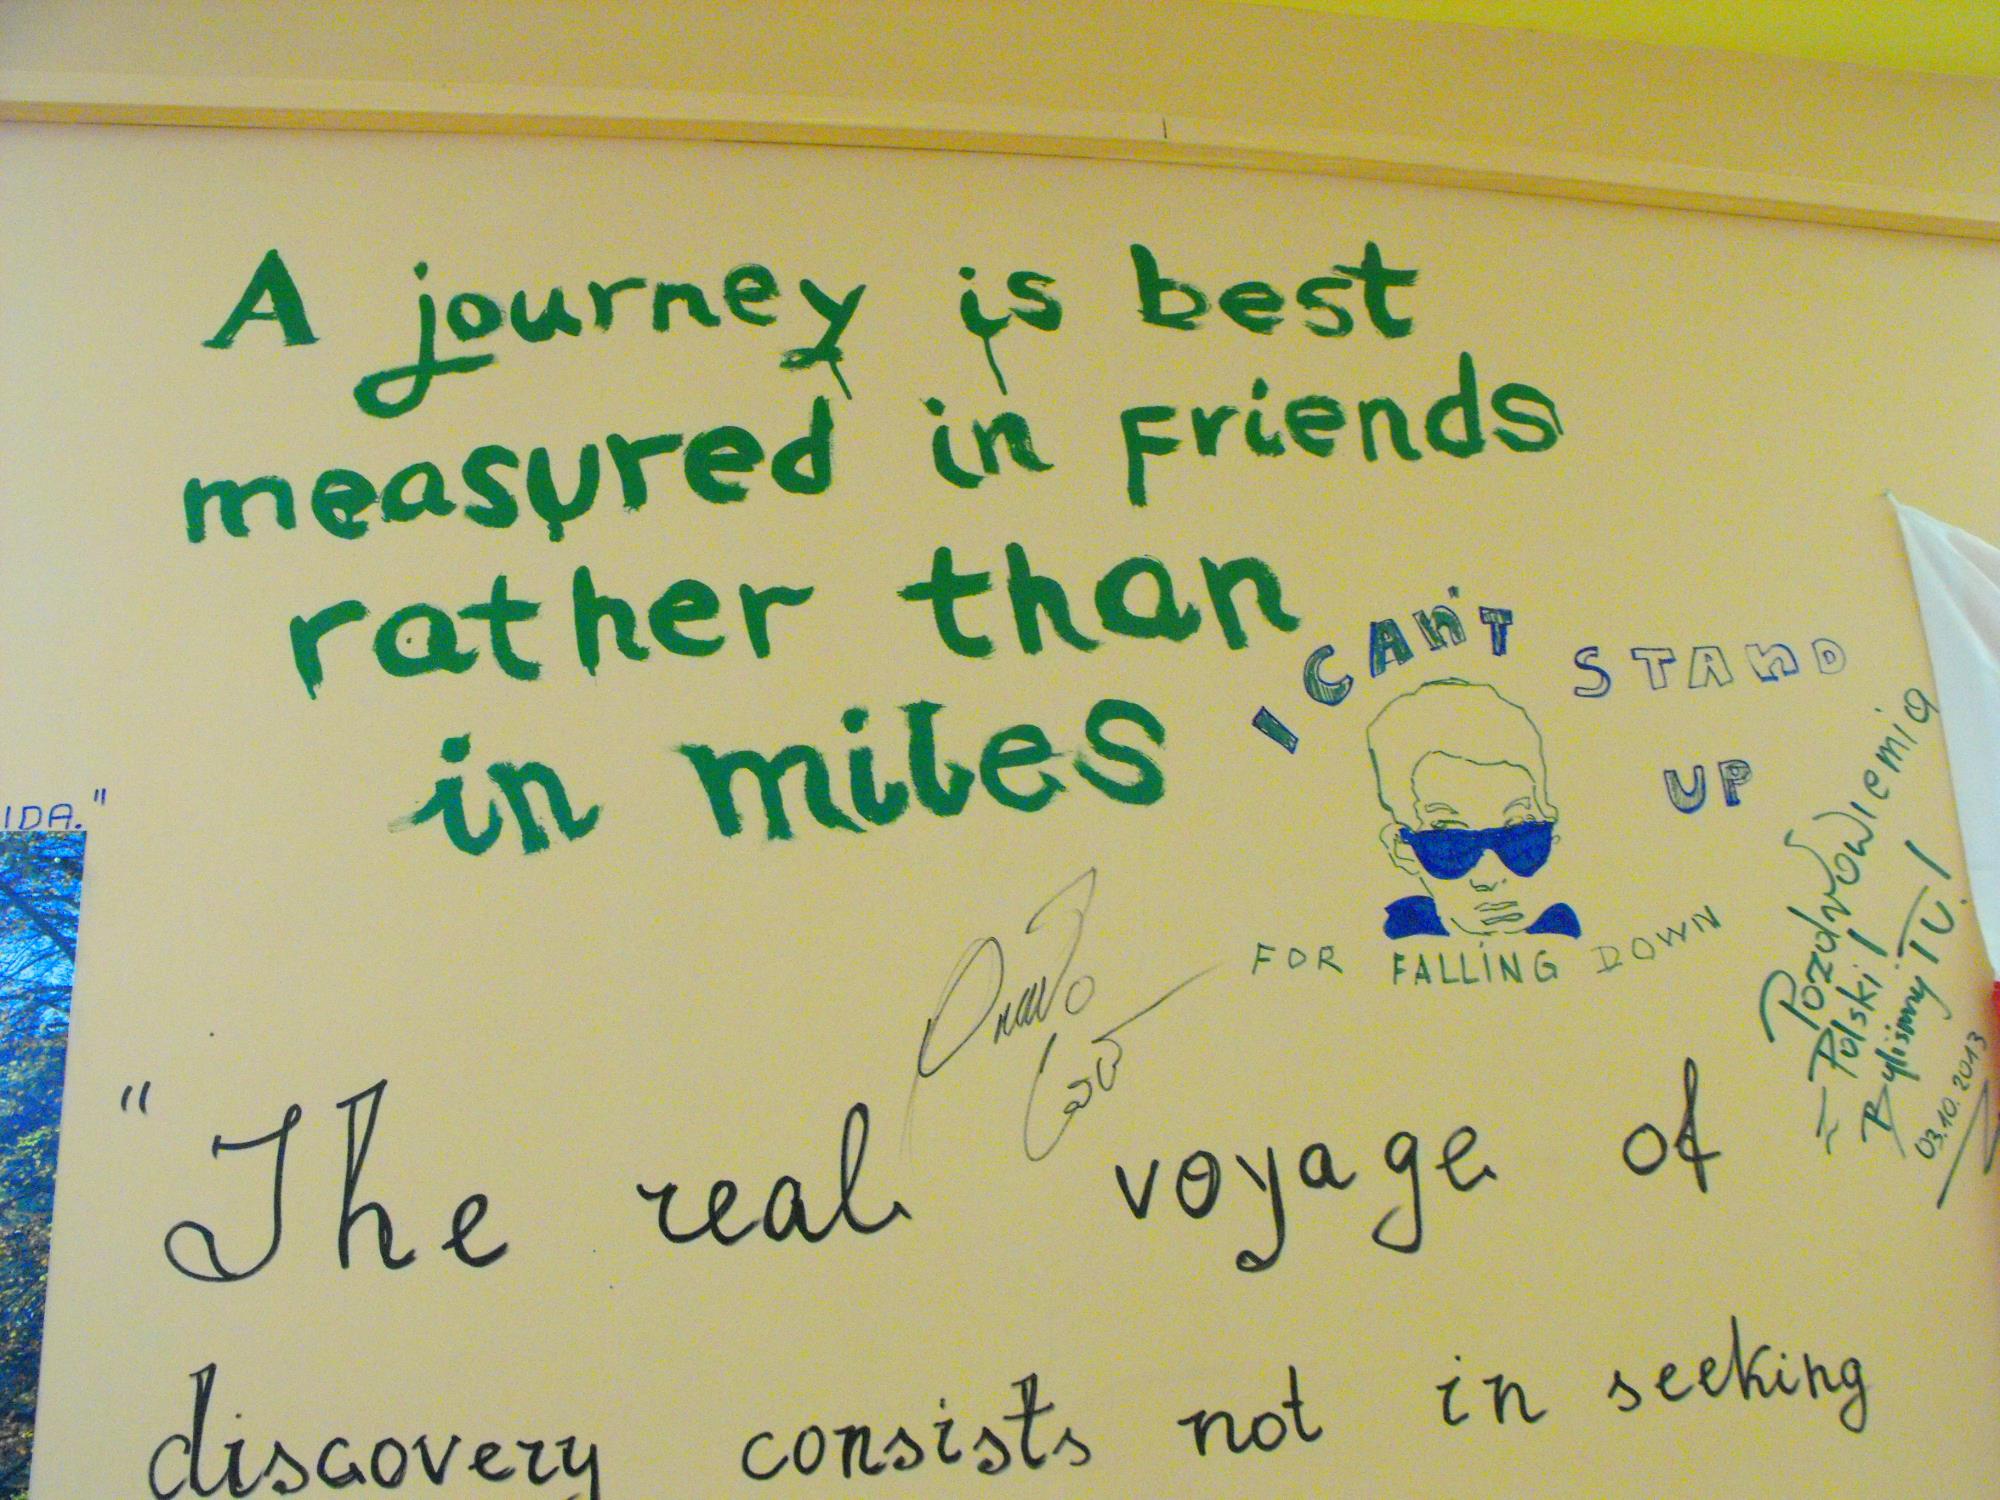 A journey is best
measured in friends
rather than
in miles
I CAN'T STAND
UP
FOR FALLING DOWN
Pozdrowiemia
z Polski!
Byliśmy TU!
03.10.2013
IDA."
"The real voyage of
discovery consists not in seeking